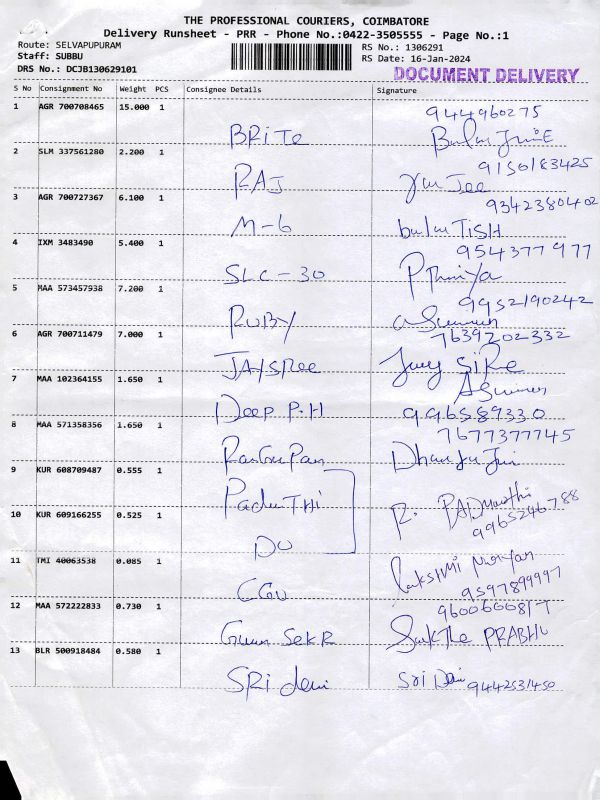 THE PROFESSIONAL COURIERS, COIMBATORE
Delivery Runsheet - PRR - Phone No.:0422-3505555 - Page No.:1
Route: SELVAPUPURAM
RS No.: 1306291
Staff: SUBBU
RS Date: 16-Jan-2024
DRS No.: DCJB130629101
DOCUMENT DELIVERY
S No Consignment No Weight PCS Consignee Details Signature
1 AGR 700708465 15.000 1
944960275
BRiTe
2 SLM 337561280 2.200 1
9150183425
RAJ
3 AGR 700727367 6.100 1
9342380402
M-6 TISH
4 IXM 3483490 5.400 1
9543777977
SLC-30
5 MAA 573457938 7.200 1
9952190242
RUBY
6 AGR 700711479 7.000 1
7639202332
JAYSRee
7 MAA 102364155 1.650 1
Deep P.H 996589330
8 MAA 571358356 1.650 1
7677377745
9 KUR 608709487 0.555 1
PaduTHi
9965246788
10 KUR 609166255 0.525 1
DO
11 TMI 40063538 0.085 1
9597899997
12 MAA 572222833 0.730 1
Gunn SekR PRABHU
13 BLR 500918484 0.580 1
SRi devi Sri Devi 9442531450